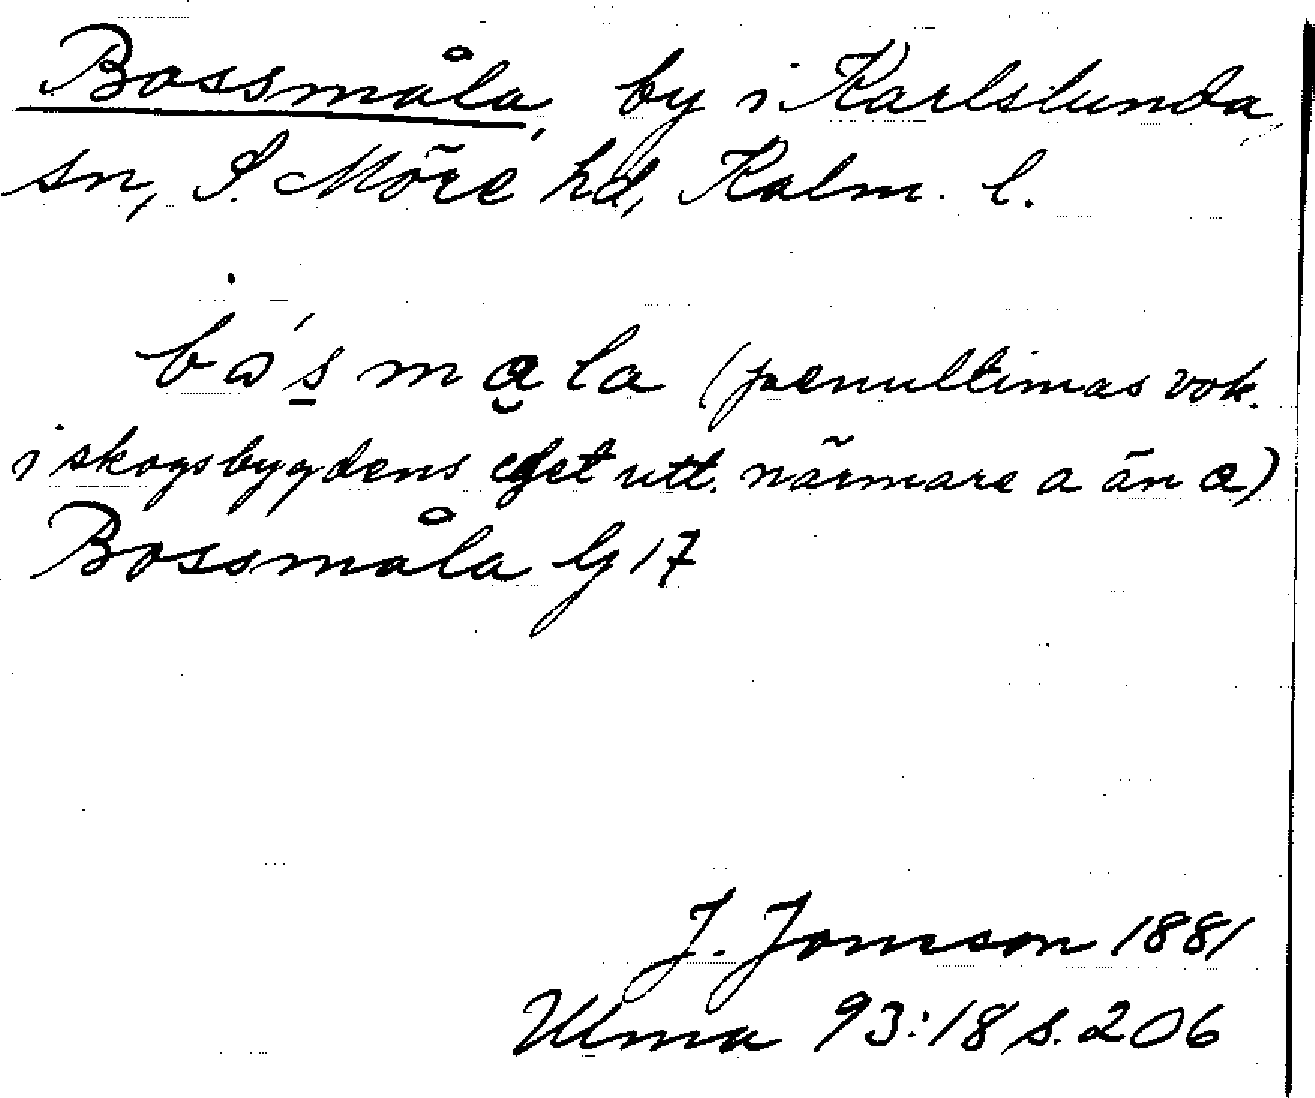 Bossmåla, by i Karlslunda
sn, S. Möre hd, Kalm. l.
bɷ́smala (penultimas vok.
i skogsbygdens utt. närmare a än a)
Bossmåla G 17
J. Jonsson 1881
Ulma 93:18 s. 206